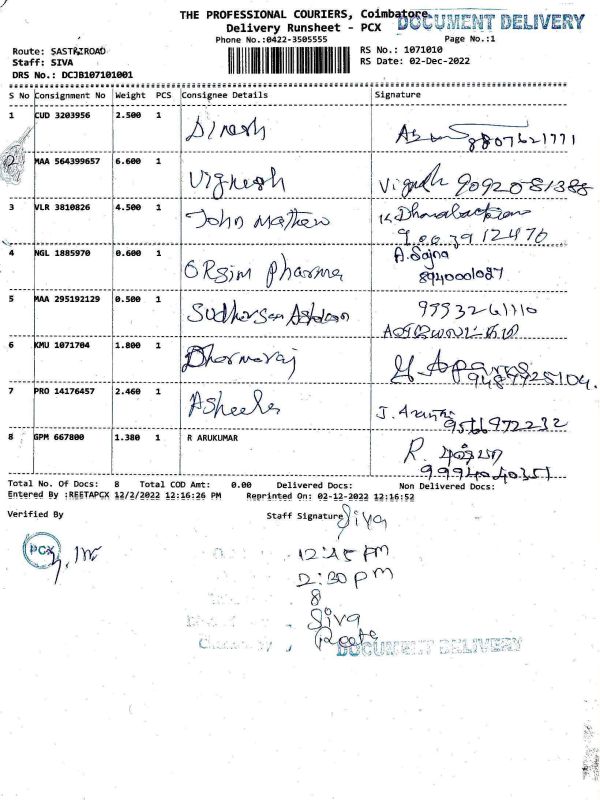 THE PROFESSIONAL COURIERS, Coimbatore
DOCUMENT DELIVERY
Delivery Runsheet - PCX
Phone No.:0422-3505555
Page No.:1
Route: SASTRIROAD
Staff: SIVA
DRS No.: DCJB107101001
RS No.: 1071010
RS Date: 02-Dec-2022
S No Consignment No Weight PCS Consignee Details Signature
1 CUD 3203956 2.500 1 Dinesh
8807621771
2 MAA 564399657 6.600 1 Vignesh Vignesh 9092081388
3 VLR 3810826 4.500 1 John Mathew
9003912470
4 NGL 1885970 0.600 1 ORGim Pharma A. Sajna
8940001087
5 MAA 295192129 0.500 1 Sudharsan
6 KMU 1071704 1.800 1 Dharmaraj
7 PRO 14176457 2.460 1 Asheela
9566972232
8 GPM 667800 1.380 1 R ARUKUMAR R.
9994040351
Total No. Of Docs: 8 Total COD Amt: 0.00 Delivered Docs: Non Delivered Docs:
Entered By :REETAPCX 12/2/2022 12:16:26 PM Reprinted On: 02-12-2022 12:16:52
Verified By Staff Signature Siva
PCX
12:45 PM
2:30 PM
8
Siva
Reeta
DOCUMENT DELIVERY